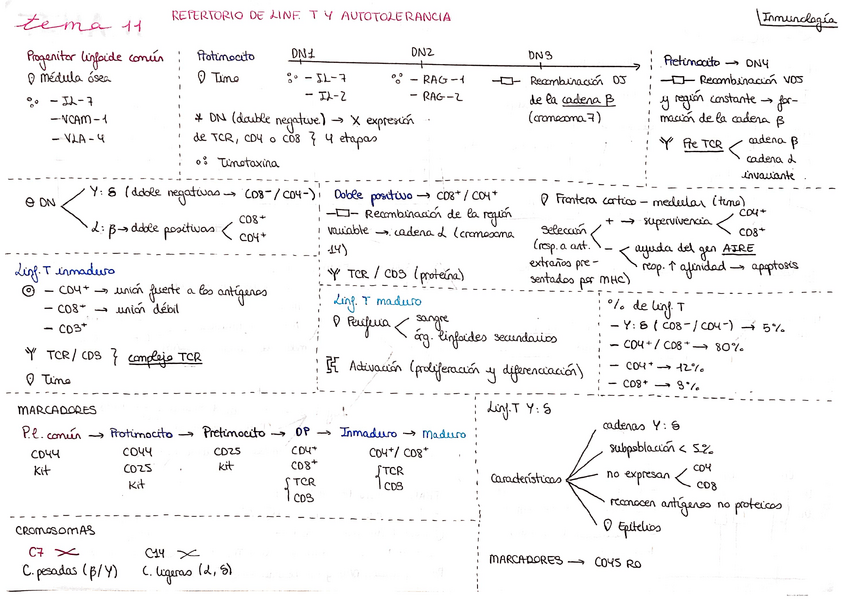 tema 11
REPERTORIO DE LINF. T Y AUTOTOLERANCIA
Inmunología
Progenitor linfoide común
Médula ósea
- IL-7
- VCAM-1
- VLA-4
Protimocito
Timo
DN1
- IL-7
- IL-2
DN2
- RAG-1
- RAG-2
DN3
Recombinación DJ
de la cadena β
(cromosoma 7)
* DN (double negative) → X expresión
de TCR, CD4 o CD8 } 4 etapas
Timotaxina
Pretimocito → DN4
Recombinación VDJ
y región constante → for-
mación de la cadena β
Pre TCR
cadena β
cadena α
invariante
⊖ DN
γ:δ (doble negativas → CD8-/CD4-)
α:β → doble positivas
CD8+
CD4+
Doble positivo → CD8+/CD4+
Recombinación de la región
variable → cadena α (cromosoma
14)
TCR / CD3 (proteína)
Frontera cortico-medular (timo)
Selección
(resp. a ant.
extraños pre-
sentados por MHC)
+ → supervivencia
CD4+
CD8+
- ayuda del gen AIRE
resp. ↑ afinidad → apoptosis
Linf. T inmaduro
- CD4+ → unión fuerte a los antígenos
- CD8+ → unión débil
- CD3+
TCR/CD3 } complejo TCR
Timo
Linf. T maduro
Periferia
sangre
órg. linfoides secundarios
Activación (proliferación y diferenciación)
% de linf. T
- γ:δ (CD8-/CD4-) → 5%
- CD4+/CD8+ → 80%
- CD4+ → 12%
- CD8+ → 3%
MARCADORES
P.l. común → Protimocito → Pretimocito → DP → Inmaduro → Maduro
CD44 CD44 CD25 CD4+ CD4+/CD8+
Kit CD25 Kit CD8+ TCR
Kit TCR CD3
CD3
CROMOSOMAS
C7
C. pesadas (β/γ)
C14
C. ligeras (α, δ)
Linf. T γ:δ
Características
cadenas γ:δ
subpoblación < 5%
no expresan
CD4
CD8
reconocen antígenos no proteicos
Epitelios
MARCADORES → CD45 RO